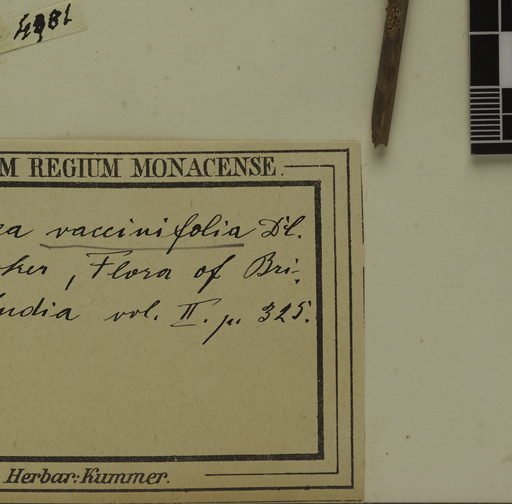 4981
M REGIUM MONACENSE.
ea vaccinifolia D'l.
oker, Flora of Bri-
India vol. II. p. 325.
Herbar: Kummer.